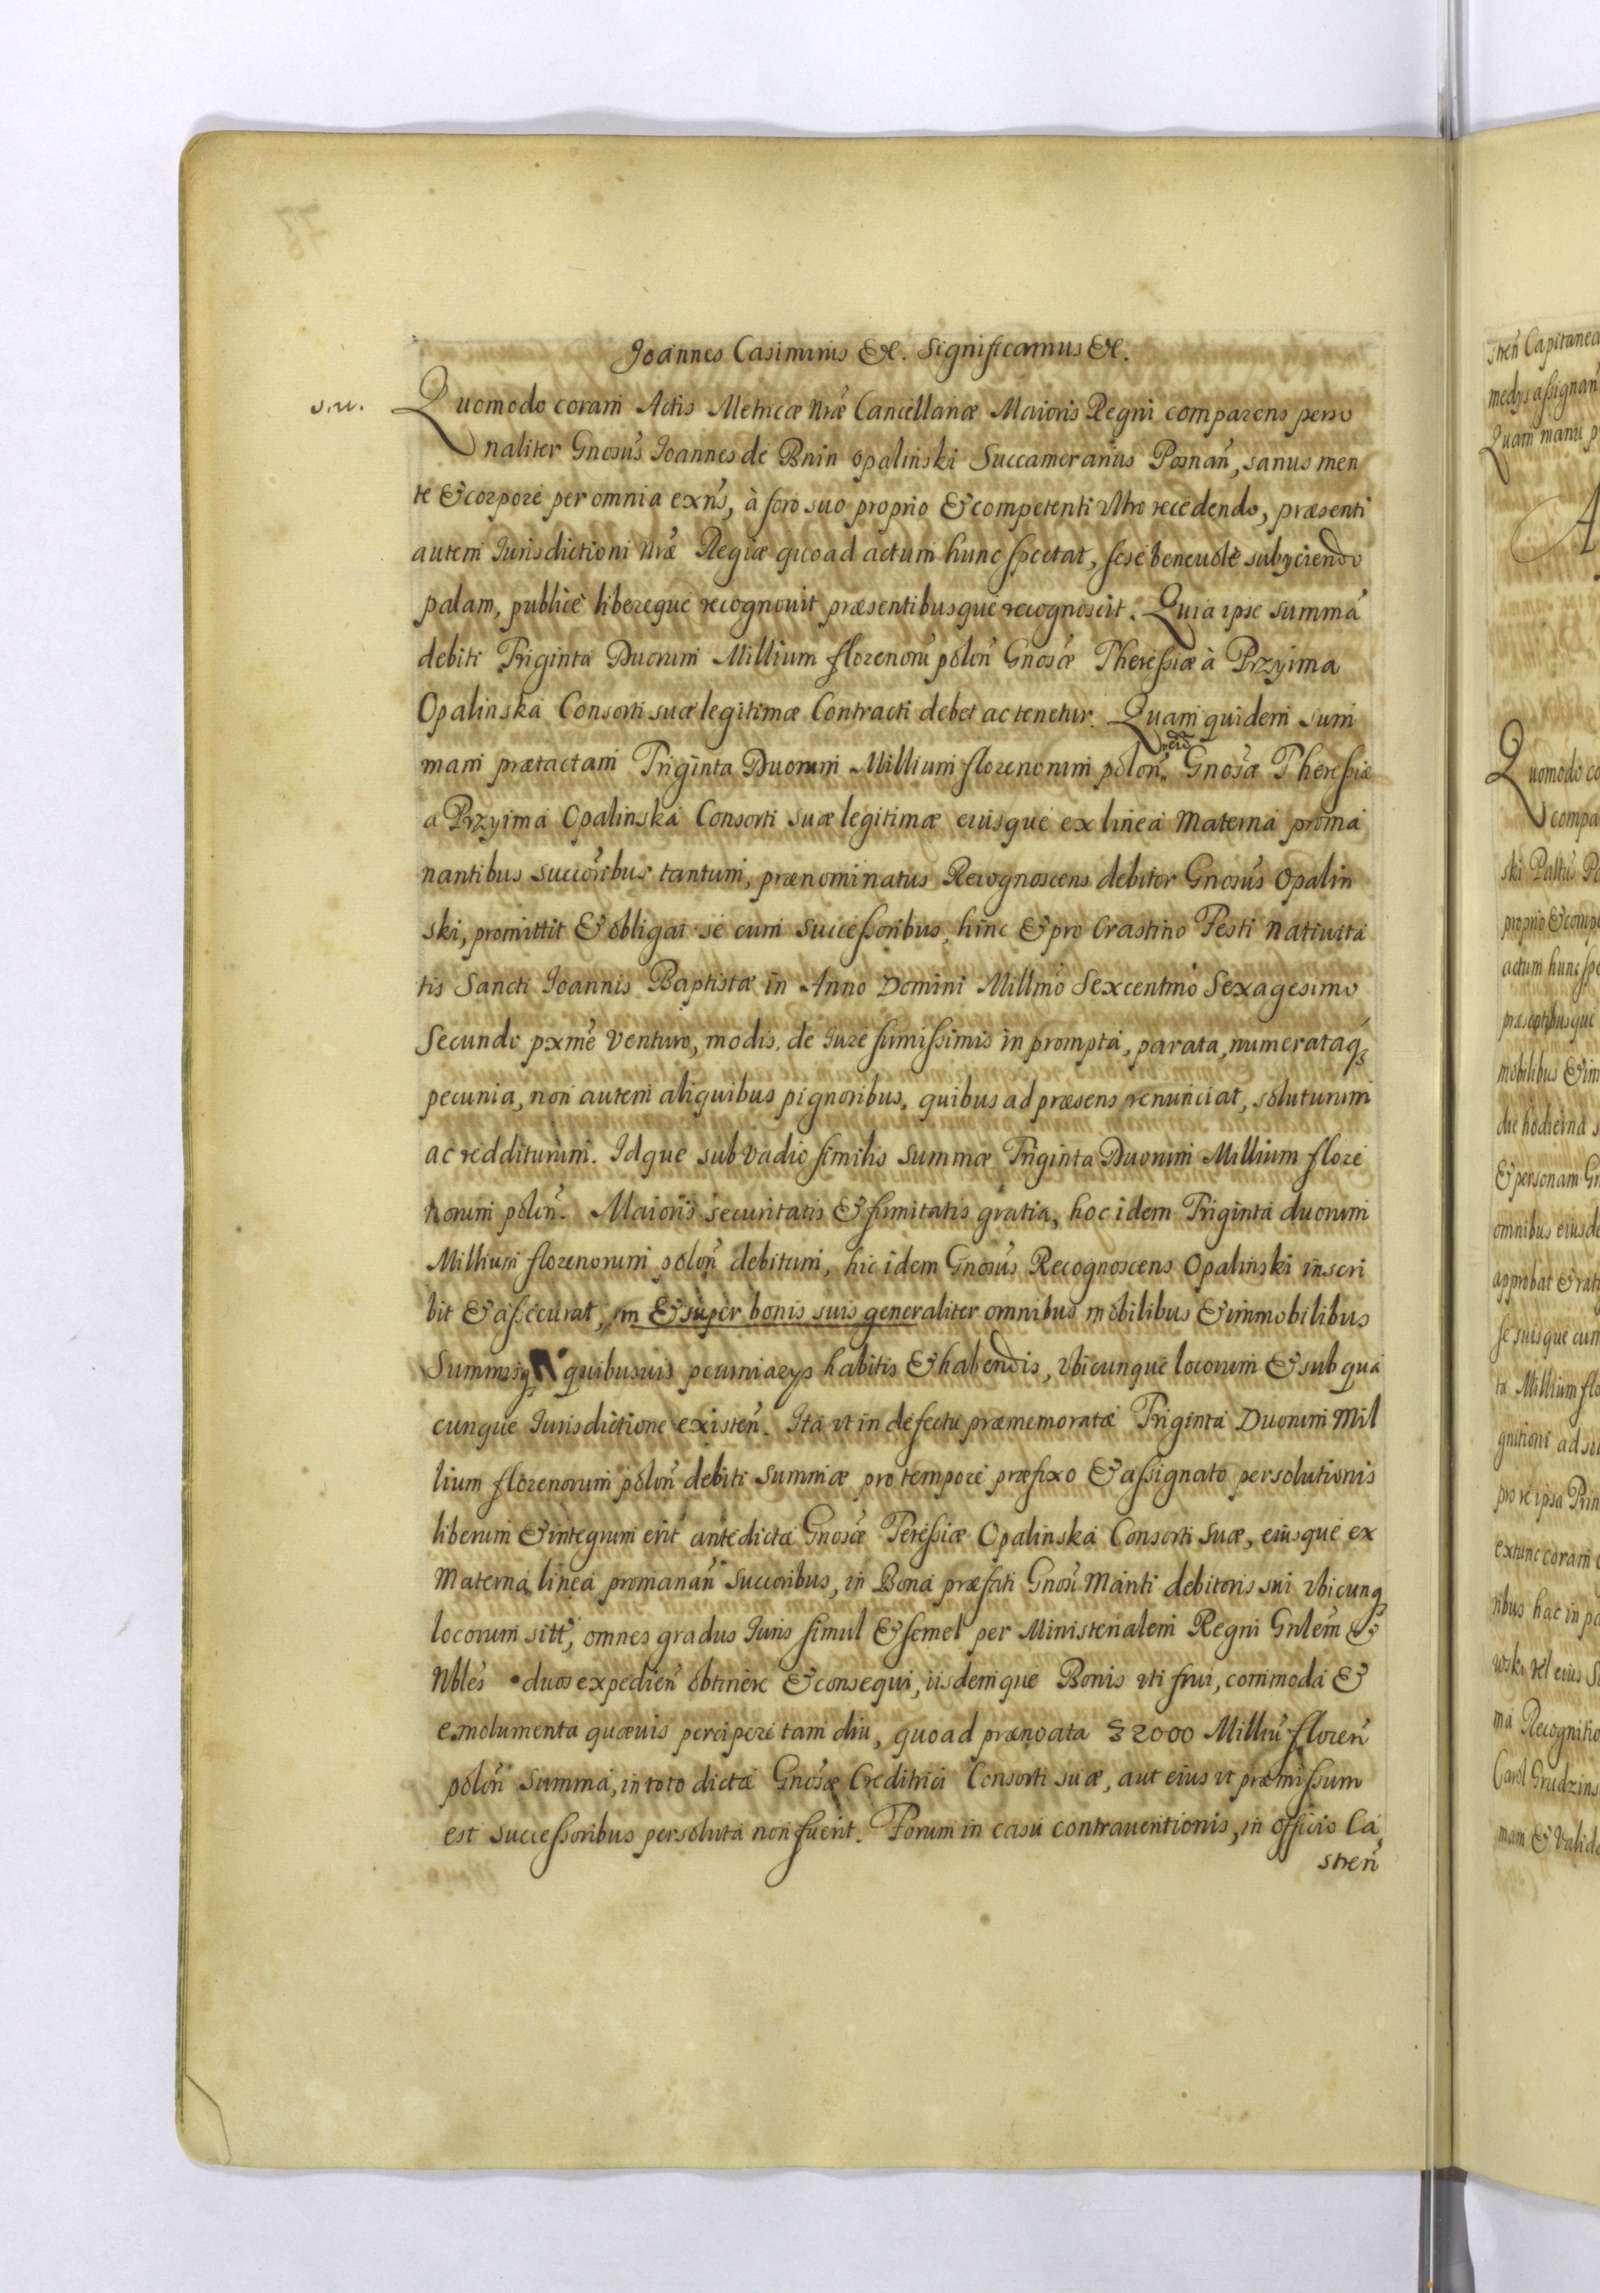 Joannes Casimirus &c. Significamus &c.
s.n.
Quomodo coram Actis Metricæ nr̃æ Cancellariæ Maioris Regni comparens perso
naliter Gnosus̃ Joannes de Bnin Opalinski Succamerarius Posnan̄, sanus men
te & corpore per omnia exñs, à foro suo proprio & competenti vltro recedendo, præsenti
autem Jurisdictioni nr̃æ Regiæ quoad actum hunc spectat, sese beneuole subyciendo
palam, publice libereque recognouit præsentibusque recognoscit. Quia ipse summa
debiti Triginta Duorum Millium florenorũ polon̄ Gnosæ̃ Theressiæ à Przyima
Opalinska Consorti suæ legitimæ Contracti debet ac tenetur. Quam quidem sum
mam prætactam Triginta Duorum Millium florenorum polon̄ eid Gnosæ̃ Theressiæ
a Przyima Opalinska Consorti suæ legitimæ eiusque ex linea Materna proma
nantibus succoribus̃ tantum, prænominatus Recognoscens debitor Gnosus̃ Opalin
ski, promittit & obligat se cum successoribus, hinc & pro Crastino Festi Natiuita
tis Sancti Joannis Baptistæ in Anno Domini Millmo̅ Sexcentmo̅ Sexagesimo
Secundo pxme̅ venturo, modis de Jure firmissimis in prompta, parata, numerataq́
pecunia, non autem aliquibus pignoribus, quibus ad præsens renunciat, soluturum
ac redditurum. Idque sub vadio similis summæ Triginta Duorum Millium flore
norum polon̄. Maioris securitatis & firmitatis gratia, hoc idem Triginta duorum
Millium florenorum polon̄ debitum, hic idem Gnosus̃ Recognoscens Opalinski inscri
bit & assecurat, in & super bonis suis generaliter omnibus mobilibus & immobilibus
Summisq́ quibusuis pecuniarys habitis & habendis, vbicunque locorum & sub qua
cunque Jurisdictione existen̄. Ita vt in defectu præmemoratæ Triginta Duorum Mil
lium florenorum polon̄ debiti summæ pro tempore præfixo & assignato persolutionis
liberum & integrum erit antedictæ Gnosæ̃ Teressiæ Opalinska Consorti suæ, eiusque ex
Materna linea promanan̄ succoribus, in Bona præfati Gnosi̅ Mariti debitoris sui vbicunq́
locorum sita̅, omnes gradus Juris simul & semel per Ministerialem Regni Gnlem̅ &
Nbles̃ duos expedien̄ obtinere & consequi, iisdemque Bonis vti frui, commoda &
emolumenta quæuis percipere tam diu, quoad prænoata 32000 Milliũ floren̄
polon̄ Summa, in toto dictæ Gnosæ̃ Creditrici Consorti suæ, aut eius vt præmissum
est successoribus persoluta non fuerit. Forum in casu contrauentionis, in officio Ca
stren̄